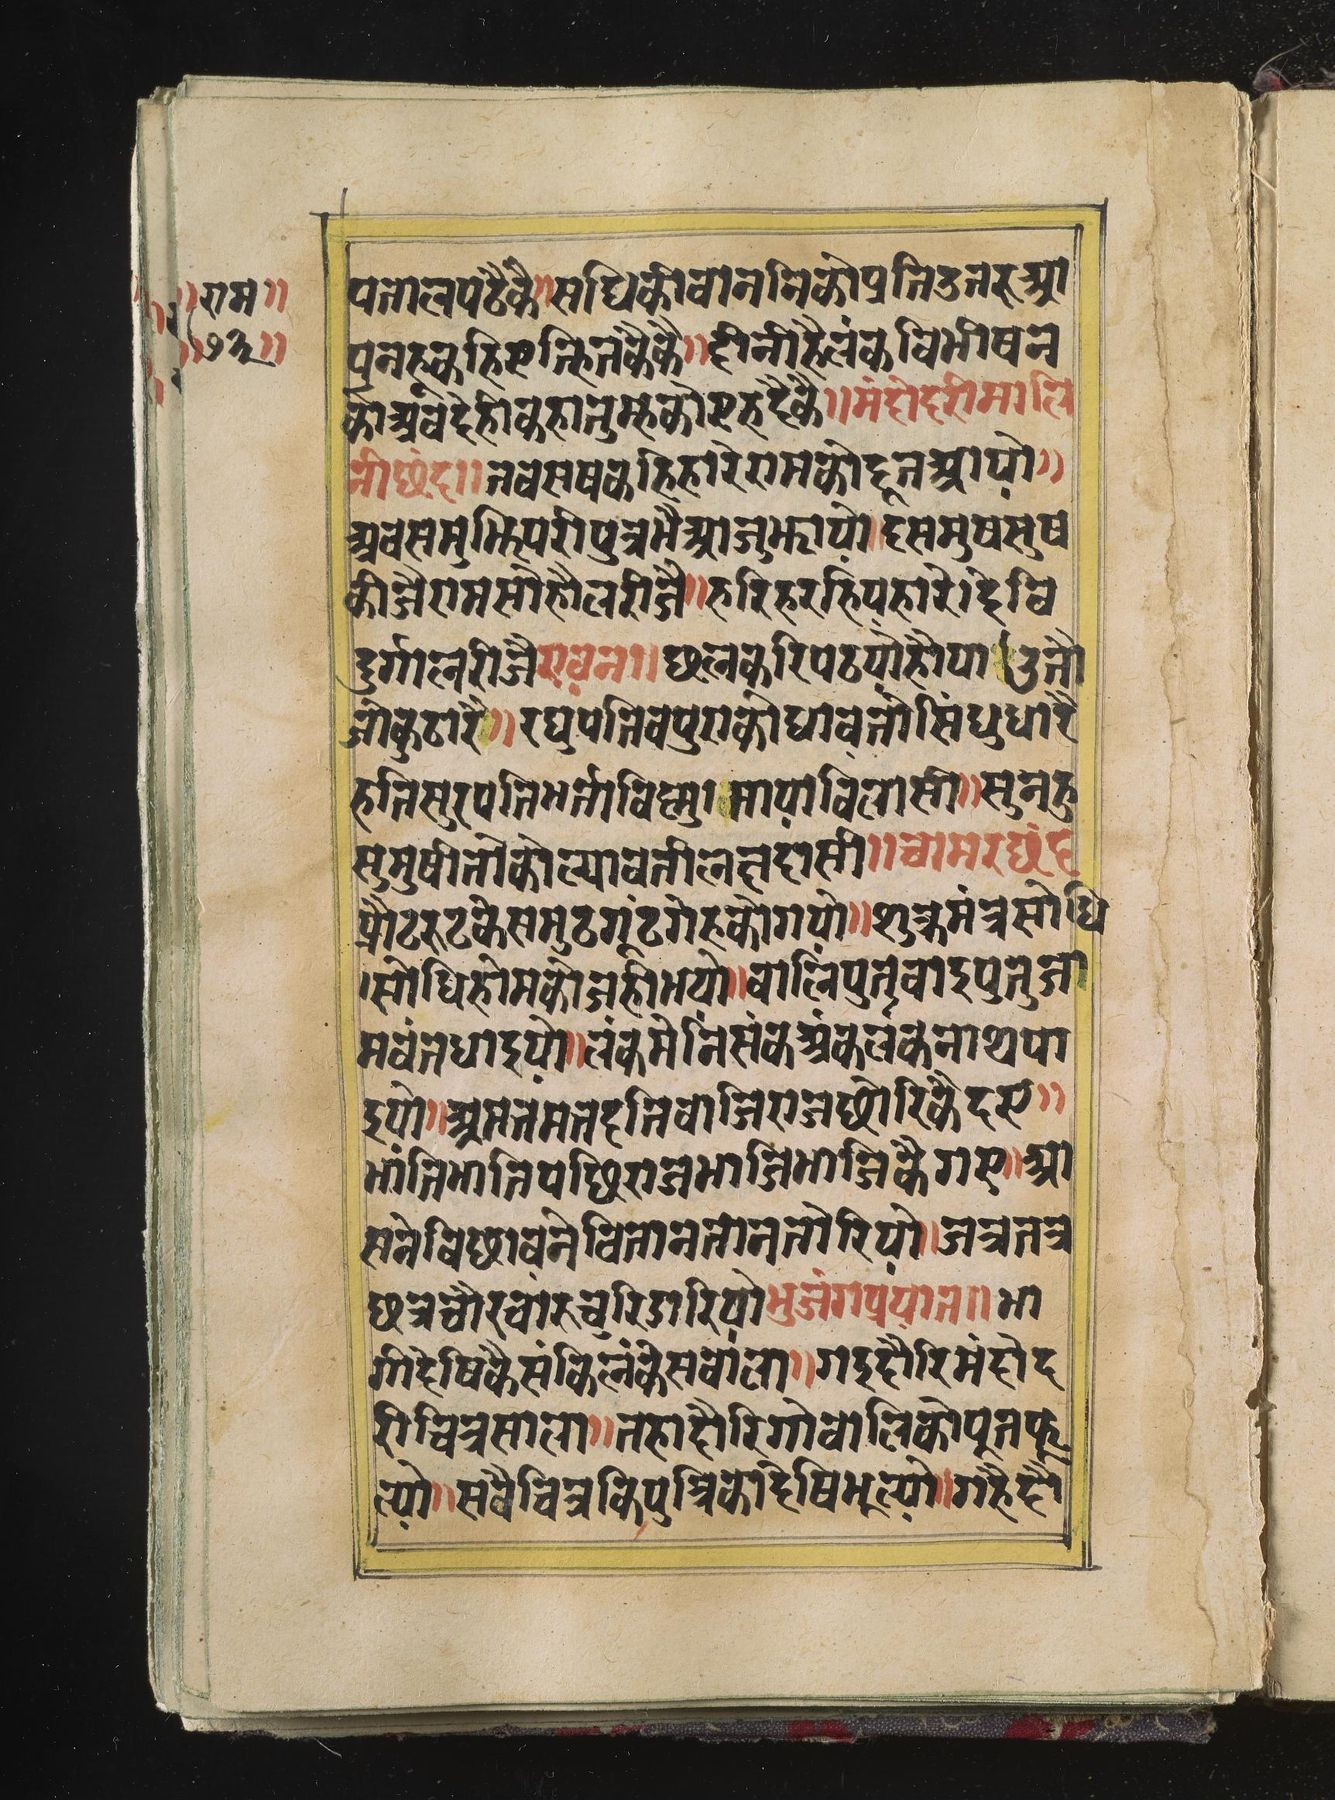 ॥राम॥
॥७३॥
पतालपठैकै॥सधिकीवातनिकोप्रतिउतरुआ
पनहूकहिएज्हितकैकै॥दीनीहैलंकविभीषन
कोअवंदेहीकहातुम्हकोएहदैकै॥मंदोदरीमालि
नीछंद॥तवसषकहिहारेरामकोदूतआयो॥
अवसमुझिपरीपुत्रमैआजुझायो॥दसमुषसुष
कीजैरामसोहौलरीजै॥हरिहरहिपहारे।देवि
दुर्गालरीजैरावन॥छलकरिपठयोहौपा।उतौ
जोकुठारै॥रघुपतिवपुराकोधावतोसिंधुधारै
हतिसुरपतिभर्ताविष्नु।मायाविलासी॥सुनहु
सुमुषीतोकोल्यावतीलछदासी॥चामरछंद
प्रौटरूटकेसमुठगूंठगेहकोगयो॥शुक्रमंत्रसोधि
।सोधिहोमकोजहीभयो॥वालिपुतृवाइपुतुजा
मवंतधाइयो॥लंकमेनिसंकअंकलंकनाथपा
इयो॥अमतमतदतिवाजिराजछोरिकैदए॥
भांतिभातिपछिराजभाजिभाजिकैगए॥आ
सनेविछावनेवितानतानतोरियो॥जत्रतत्र
छत्रचौरचारुचुरिडारियो भुजंगप्रयात॥भा
गीदेषिकैसंकिलंकेसवाला॥गइदौरिमंदोद
रीचित्रसाला॥तहादौरिगोवालिकोपूतफू
ल्यो॥सवैचित्रकिपुत्रिकादेषिभूल्यो॥गहैदौ